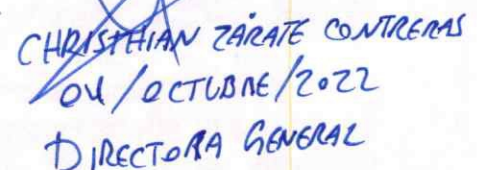 CHRISTHIAN ZÁRATE CONTRERAS
04/OCTUBRE/2022
DIRECTORA GENERAL